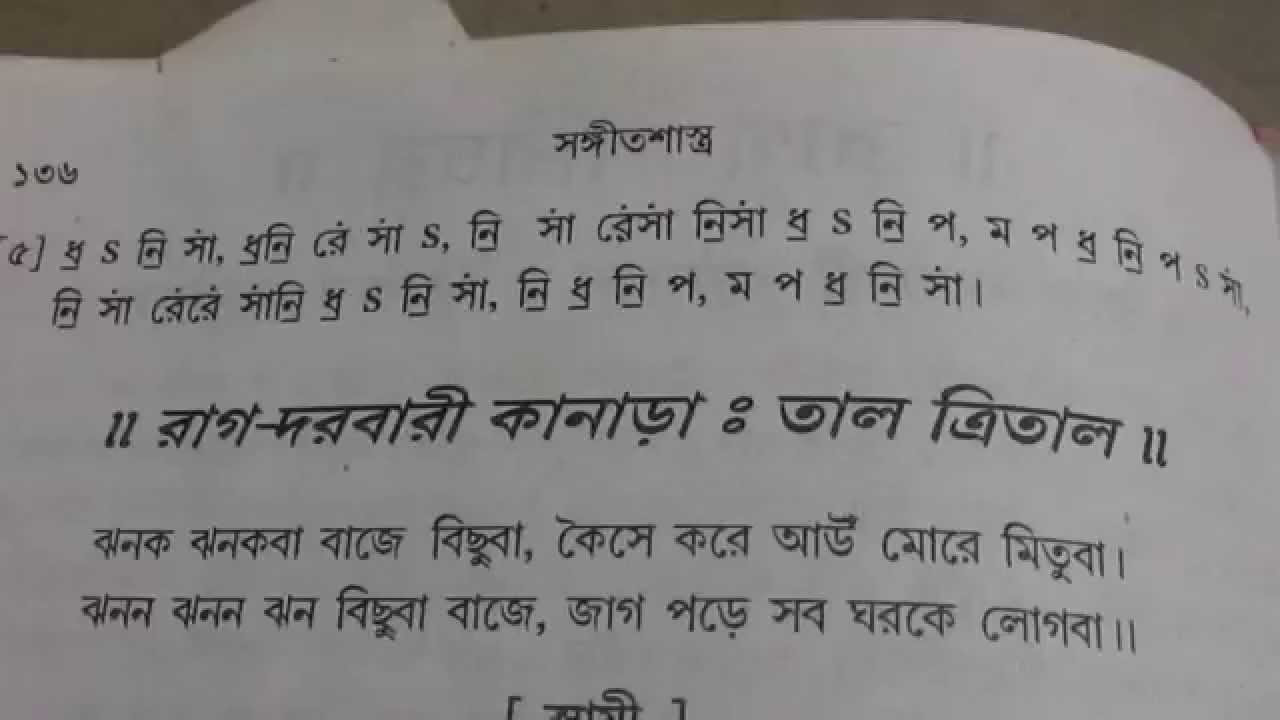 সঙ্গীতশাস্ত্র
১৩৬
[৫] ধ॒ S নি॒ সাং, ধ॒নি॒ রেং সাং S, নি॒ সাং রেংসাং নি॒সাং ধ॒ S নি॒ প, ম প ধ॒ নি॒ প S সাং,
নি॒ সাং রেংরেং সাংনি॒ ধ॒ S নি॒ সাং, নি॒ ধ॒ নি॒ প, ম প ধ॒ নি॒ সাং।
॥ রাগ-দরবারী কানাড়া ঃ তাল ত্রিতাল ॥
ঝনক ঝনকবা বাজে বিছুবা, কৈসে করে আউঁ মোরে মিতুবা।
ঝনন ঝনন ঝন বিছুবা বাজে, জাগ পড়ে সব ঘরকে লোগবা॥